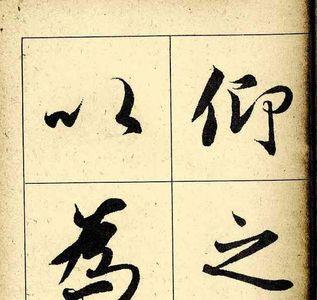 仰之
以為